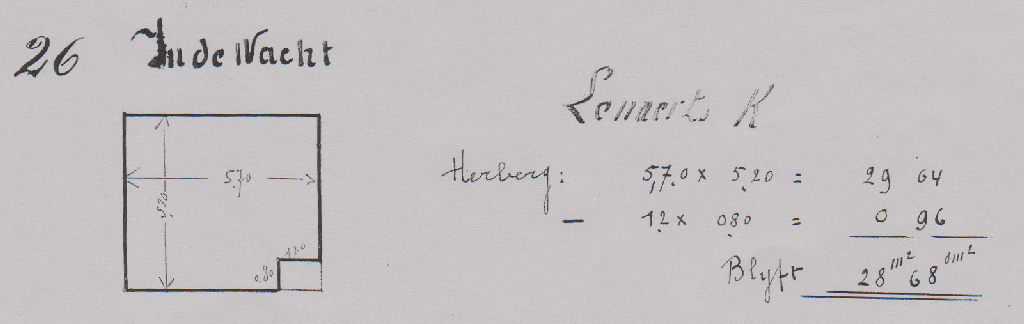 26 In de Wacht
Lennert K
5.70
5.20
1.20
0.80
Herberg: 5,7.0 x 5.20 = 29 64
— 1.2 x 0.80 = 0 96
Blyft 28 m² 68 dm²